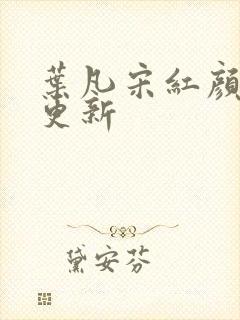 葉凡宋紅顏
更新
黛安芬